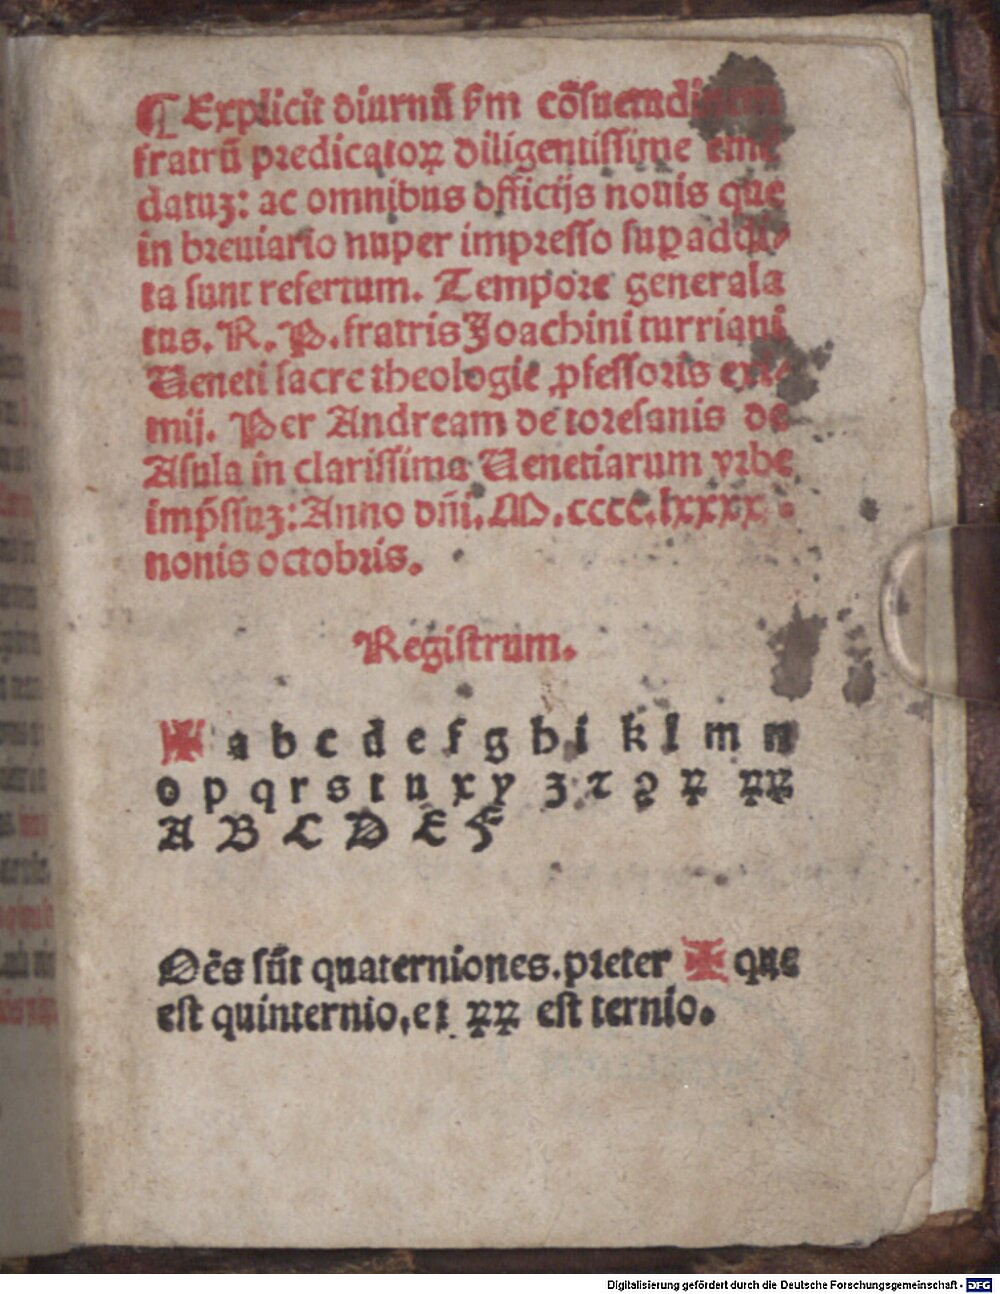 ¶ Explicit diurnū ẜm cōſuetudinem
fratrū predicatoꝝ diligentiſſime emē
datuꝫ: ac omnibus officijs nouis que
in breuiario nuper impreſſo ſuꝑaddi⸗
ta ſunt refertum. Tempore generala
tus. R. P. fratris Joachini turriani
Ueneti ſacre theologie ꝓfeſſoris exi⸗
mij. Per Andream de toreſanis de
Aſula in clariſſima Uenetiarum vrbe
imp̄ſſuꝫ: Anno dn̄i. M. cccc. lxxxx.
nonis octobris.
Regiſtrum.
✠ a b c d e f g h i k l m n
o p q r s t u x y z ꝛ ꝯ ꝝ ꝝꝝ
A B C D E F
Oēs ſūt quaterniones. preter ✠ que
eſt quinternio, et ꝝꝝ eſt ternio.
Digitalisierung gefördert durch die Deutsche Forschungsgemeinschaft - DFG